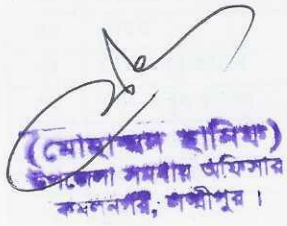 (মোহাম্মদ হানিফ)
উপজেলা সমবায় অফিসার
কমলনগর, লক্ষ্মীপুর ।